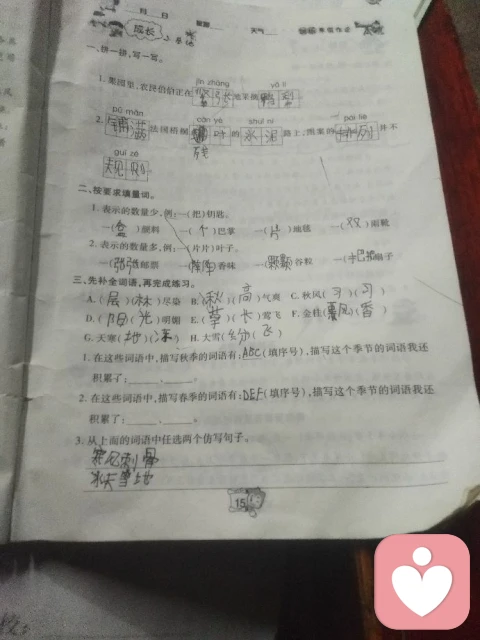 月 日
天气
成长
一、拼一拼,写一写。
jǐn zhāng yǎ lì
1. 果园里,农民伯伯正在
pū mǎn còn yé shuǐ ní pái liè
2. 铺满 法国梧桐 的 水泥 路上,图案的 排列 并不
残
guī zé
规则
二、按要求填量词。
1. 表示的数量少,例:一(把)钥匙。
一(盒)颜料 一(个)巴掌 一(片)地毯 一(双)雨靴
2. 表示的数量多,例:一(片片)叶子。
一(张张)邮票 一(阵阵)香味 一(颗颗)谷粒 扇子
三、先补全词语,再完成练习。
A. (层)(林)尽染 B. (秋)(高)气爽 C. 秋风(习)(习)
D. (阳)(光)明朗 E. (草)(长)莺飞 F. 金桂(飘)(香)
G. 天寒(地)(冻) H. 大雪(纷)(飞)
1. 在这些词语中,描写秋季的词语有:ABC(填序号),描写这个季节的词语我还
积累了:______、______。
2. 在这些词语中,描写春季的词语有:DEF(填序号),描写这个季节的词语我还
积累了:______、______。
3. 从上面的词语中任选两个仿写句子。
寒风刺骨
冰天雪地
15